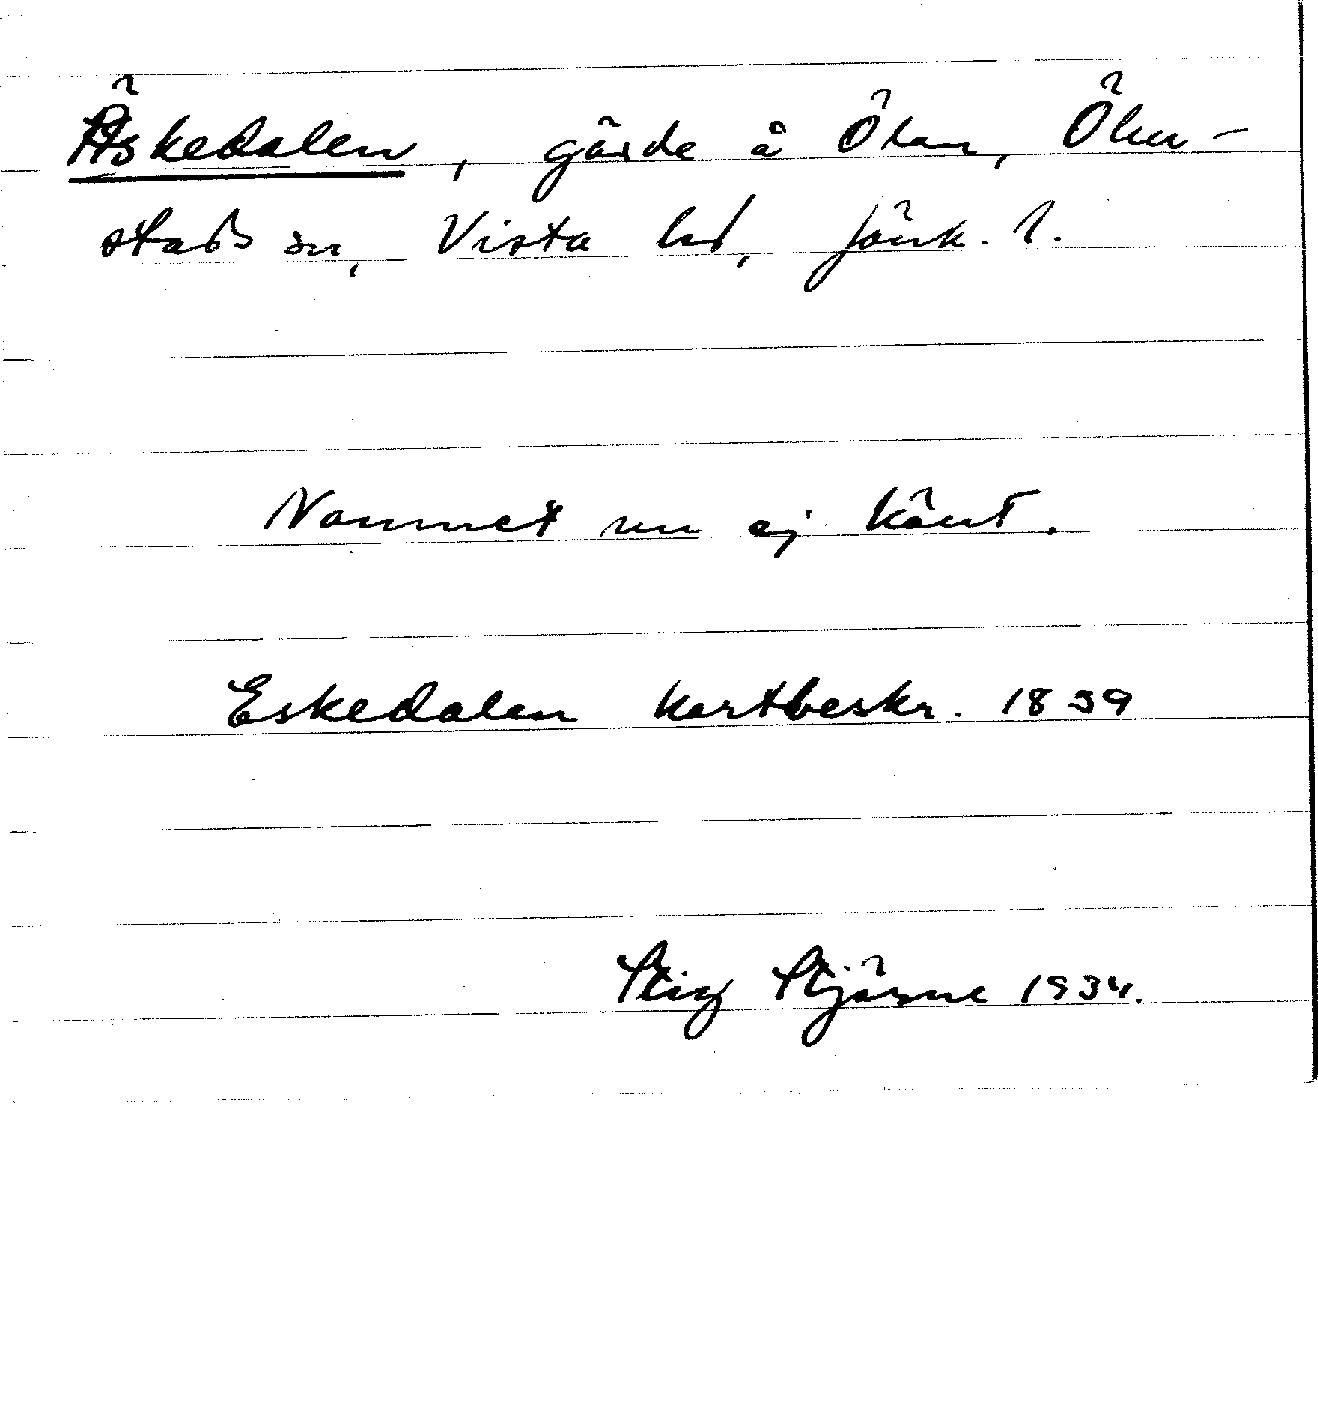 Äskedalen, gärde å Ölan, Ölm-
stads sn, Vista hd, Jönk. l.
Namnet nu ej känt.
Eskedalen kartbeskr. 1839
Stig Stjärne 1934.